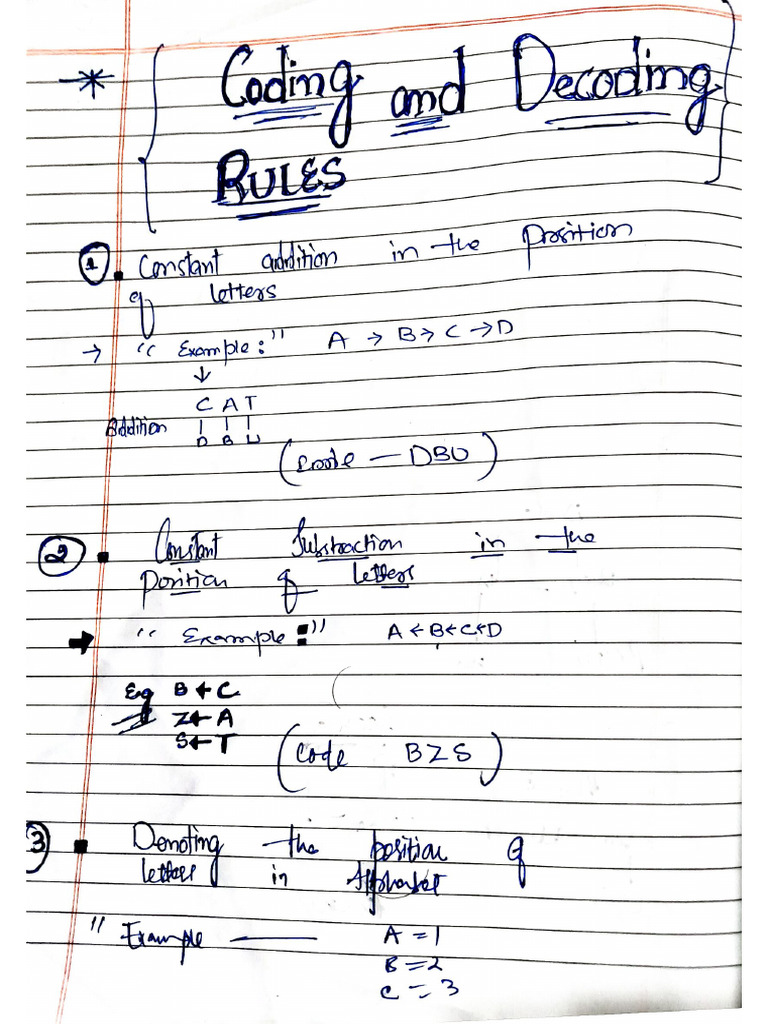 * Coding and Decoding
RULES
1. Constant addition in the Prosition
of letters
→ "Example:" A → B → C → D
↓
C A T
Addition | | |
D B U
(code — DBU)
2 ▪ Constant Substraction in the
Position of letters
→ "Example:" A ← B ← C ← D
Eg B ← C
Z ← A
S ← T
(code BZS)
3 ▪ Denoting the position of
letters in Alphabet
" Example —— A = 1
B = 2
C = 3